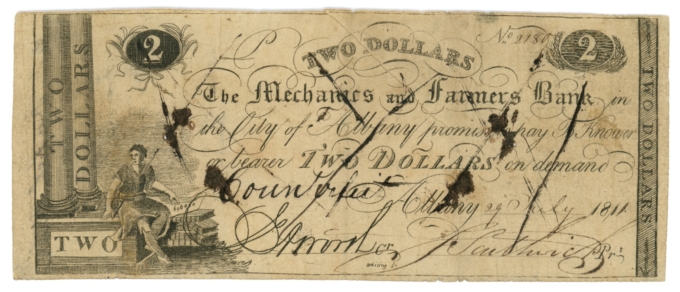 2
P
TWO DOLLARS
No
2
TWO DOLLARS
TWO DOLLARS
The Mechanics and Farmers Bank in
the City of Albany promise pay B Knower
or bearer TWO DOLLARS on demand
Counterfeit
Albany 29 July 1811
TWO
Cr
Prt